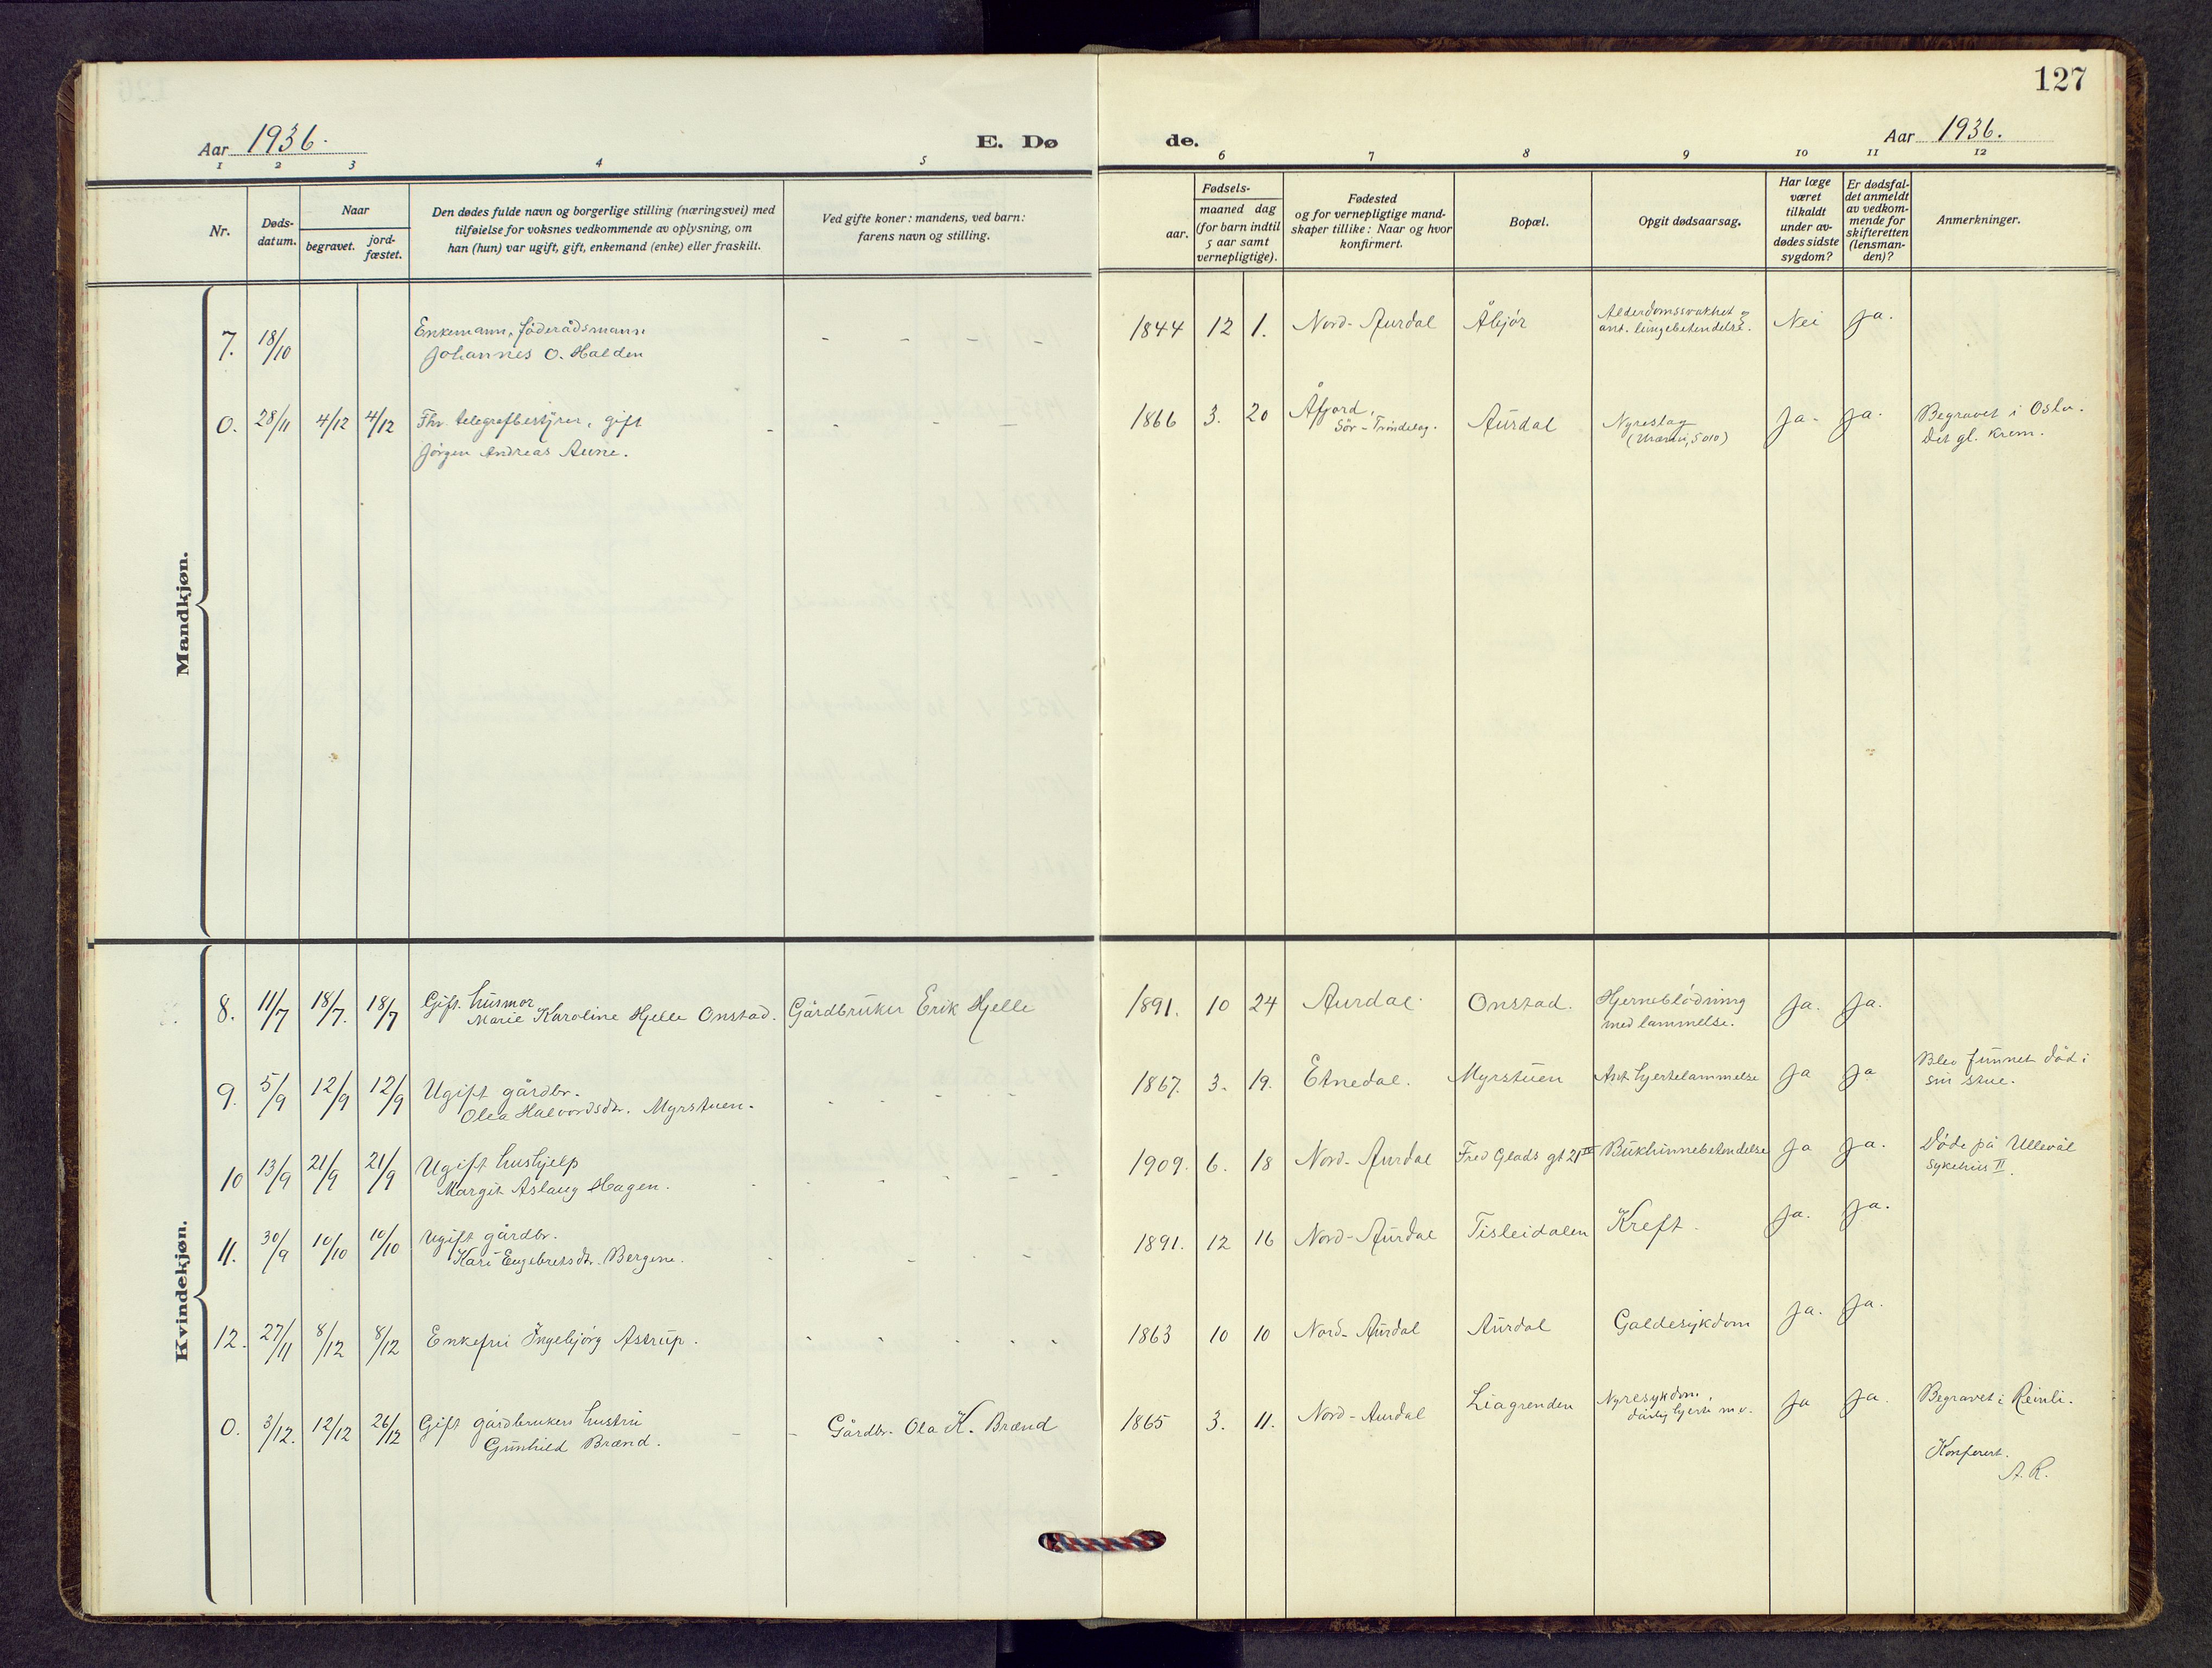 127
Aar 1936.
E. Dø
de.
Aar 1936.
1 2 3 4 5 6 7 8 9 10 11 12
Nr.
Døds-
datum.
Naar
begravet.
jord-
fæstet.
Den dødes fulde navn og borgerlige stilling (næringsvei) med
tilføielse for voksnes vedkommende av oplysning, om
han (hun) var ugift, gift, enkemand (enke) eller fraskilt.
Ved gifte koner: mandens, ved barn:
farens navn og stilling.
Fødsels-
aar.
maaned dag
(for barn indtil
5 aar samt
vernepligtige).
Fødested
og for vernepligtige mand-
skaper tillike: Naar og hvor
konfirmert.
Bopæl.
Opgit dødsaarsag.
Har læge
været
tilkaldt
under av-
dødes sidste
sygdom?
Er dødsfal-
det anmeldt
av vedkom-
mende for
skifteretten
(lensman-
den)?
Anmerkninger.
Mandkjøn.
7. 18/10 Enkemann, föderådsmann
Johannes O. Halden
1844 12 1. Nord-Aurdal Åbjör Alderdomssvakhet og
ant. lungebetendelse. Nei Ja.
0. 28/11 4/12 4/12 Fhv. telegrafbestyrer, gift
Jörgen Andreas Aune.
1866 3. 20 Åfjord,
Sör-Tröndelag. Aurdal Nyreslag
(Uræmi, ) Ja. Ja. Begravet i Oslo.
Det gl. krem.
Kvindekjøn.
8. 11/7 18/7. 18/7 Gift. husmor
Marie Karoline Hjelle Onstad. Gårdbruker Erik Hjelle
1891. 10 24 Aurdal. Onstad. Hjerneblödning
med lammelse. Ja. Ja.
9. 5/9 12/9 12/9 Ugift gårdbr.
Olea Halvordsdtr. Myrstuen.
1867. 3. 19. Etnedal. Myrstuen Ant. hjertelammelse Ja Ja Blev funnet död i
sin stue.
10 13/9 21/9 21/9 Ugift hushjelp
Margit Aslaug Hagen.
1909. 6. 18 Nord-Aurdal Fred Glads gt 21 IV Bukhinnebetendelse Ja Ja. Döde på Ullevål
sykehus II.
11. 30/9 10/10 10/10 Ugift gårdbr.
Kari Engebretsdtr. Bergene.
1891. 12 16 Nord-Aurdal Tisleidalen Kreft. Ja. Ja.
12. 27/11 8/12 8/12 Enkefru Ingebjörg Astrup.
1863 10 10 Nord-Aurdal Aurdal Galdesykdom Ja. Ja.
0. 3/12. 12/12 26/12 Gift gårdbrukers hustru
Gunhild Brænd. Gårdbr. Ola K. Brænd
1865 3. 11. Nord-Aurdal Liagrenden Nyresykdom,
dårlig hjerte m.v. Ja Ja. Begravet i Reinli.
Konferert.
A. R.